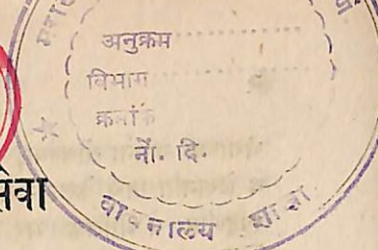 अनुक्रम
विभाग
क्रमांक
नों. दि.
सेवा
वाचनालय शाखा